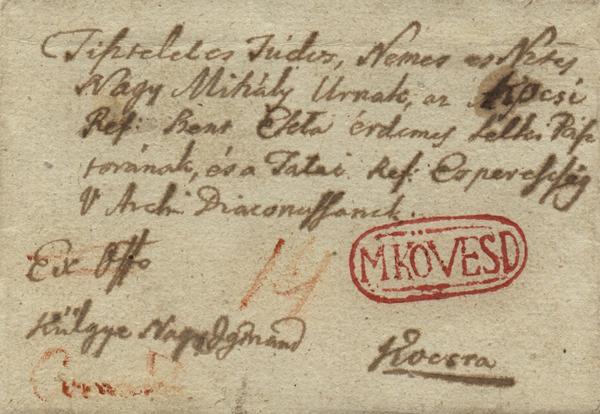 Tiszteletes Tudós, Nemes es Nztes
Nagy Mihály Urnak, az Kocsi
Ref: Szent Ekla érdemes Lelki Pász
torának, és a Tatai Ref: Esperesség
V Archi Diaconussanak.
Ex Offo
MKÖVESD
Nagy Igmand
Kocsra